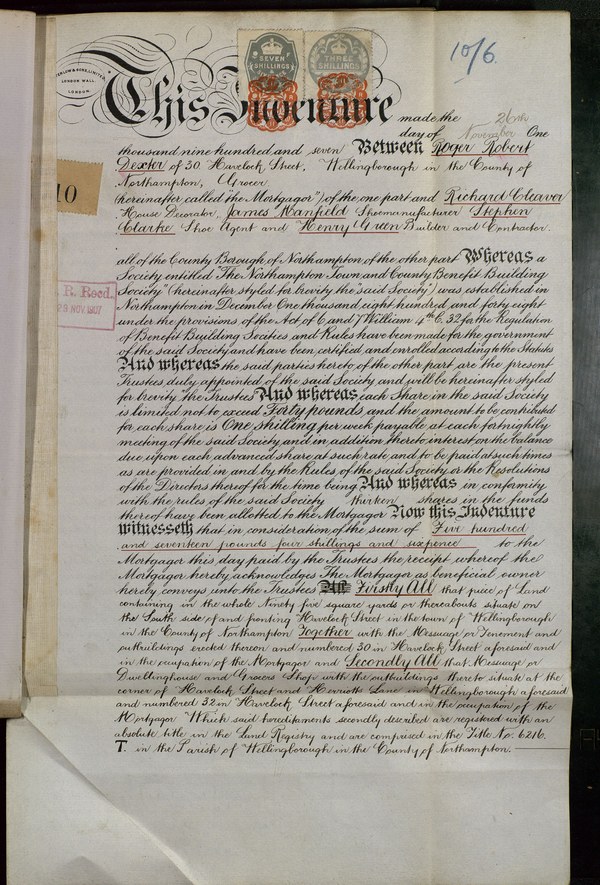 WATERLOW & SONS LIMITED,
LONDON WALL,
LONDON.
SEVEN SHILLINGS
THREE SHILLINGS
10/6
This Indenture made the 26th
day of November One
thousand nine hundred and seven Between Roger Robert
Dexter of 30. Havelock Street, Wellingborough in the County of
Northampton, Grocer
(hereinafter called "the Mortgagor") of the one part and Richard Cleaver
House Decorator, James Manfield Shoemanufacturer Stephen
Clarke Shoe Agent and Henry Green Builder and Contractor.
10
all of the County Borough of Northampton of the other part Whereas a
Society entitled "The Northampton Town and County Benefit Building
Society" (hereinafter styled for brevity the "said Society") was established in
Northampton in December One thousand eight hundred and forty eight
R. Recd.
26 NOV 1907
under the provisions of the Act of 6 and 7 William 4th C. 32 for the Regulation
of Benefit Building Societies and Rules have been made for the government
of the said Society and have been certified and enrolled according to the Statutes
And whereas the said parties hereto of the other part are the present
Trustees duly appointed of the said Society and will be hereinafter styled
for brevity the Trustees And whereas each Share in the said Society
is limited not to exceed Forty pounds and the amount to be contributed
for each share is One shilling per week payable at each fortnightly
meeting of the said Society and in addition thereto interest on the balance
due upon each advanced share at such rate and to be paid at such times
as are provided in and by the Rules of the said Society or the Resolutions
of the Directors thereof for the time being And whereas in conformity
with the rules of the said Society thirteen shares in the funds
thereof have been allotted to the Mortgagor Now this Indenture
witnesseth that in consideration of the sum of Five hundred
and seventeen pounds four shillings and sixpence to the
Mortgagor this day paid by the Trustees the receipt whereof the
Mortgagor hereby acknowledges The Mortgagor as beneficial owner
hereby conveys unto the Trustees All Firstly All that piece of Land
containing in the whole Ninety five square yards or thereabouts situate on
the South side of and fronting Havelock Street in the town of Wellingborough
in the County of Northampton Together with the Messuage or Tenement and
outbuildings erected thereon and numbered 30 in Havelock Street aforesaid and
in the occupation of the Mortgagor and Secondly All that Messuage or
Dwellinghouse and Grocers Shop with the outbuildings thereto situate at the
corner of Havelock Street and Herriotts Lane in Wellingborough aforesaid
and numbered 32 in Havelock Street aforesaid and in the occupation of the
Mortgagor Which said hereditaments secondly described are registered with an
absolute title in the Land Registry and are comprised in the Title No: 6216.
T. in the Parish of Wellingborough in the County of Northampton.